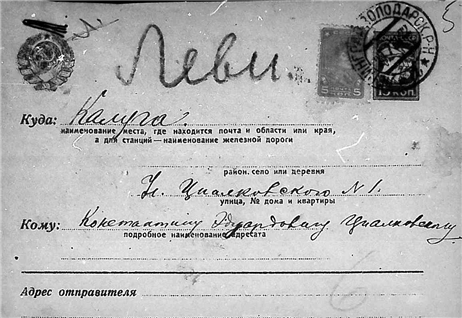 Леви
5
5
15 КОП.
Куда: Калуга.
наименование места, где находится почта и области или края,
а для станций—наименование железной дороги
район, село или деревня
Ул. Циалковского N 1.
улица, № дома и квартиры
Кому: Константину Эдуардовичу Циалковскому
подробное наименование адресата
Адрес отправителя